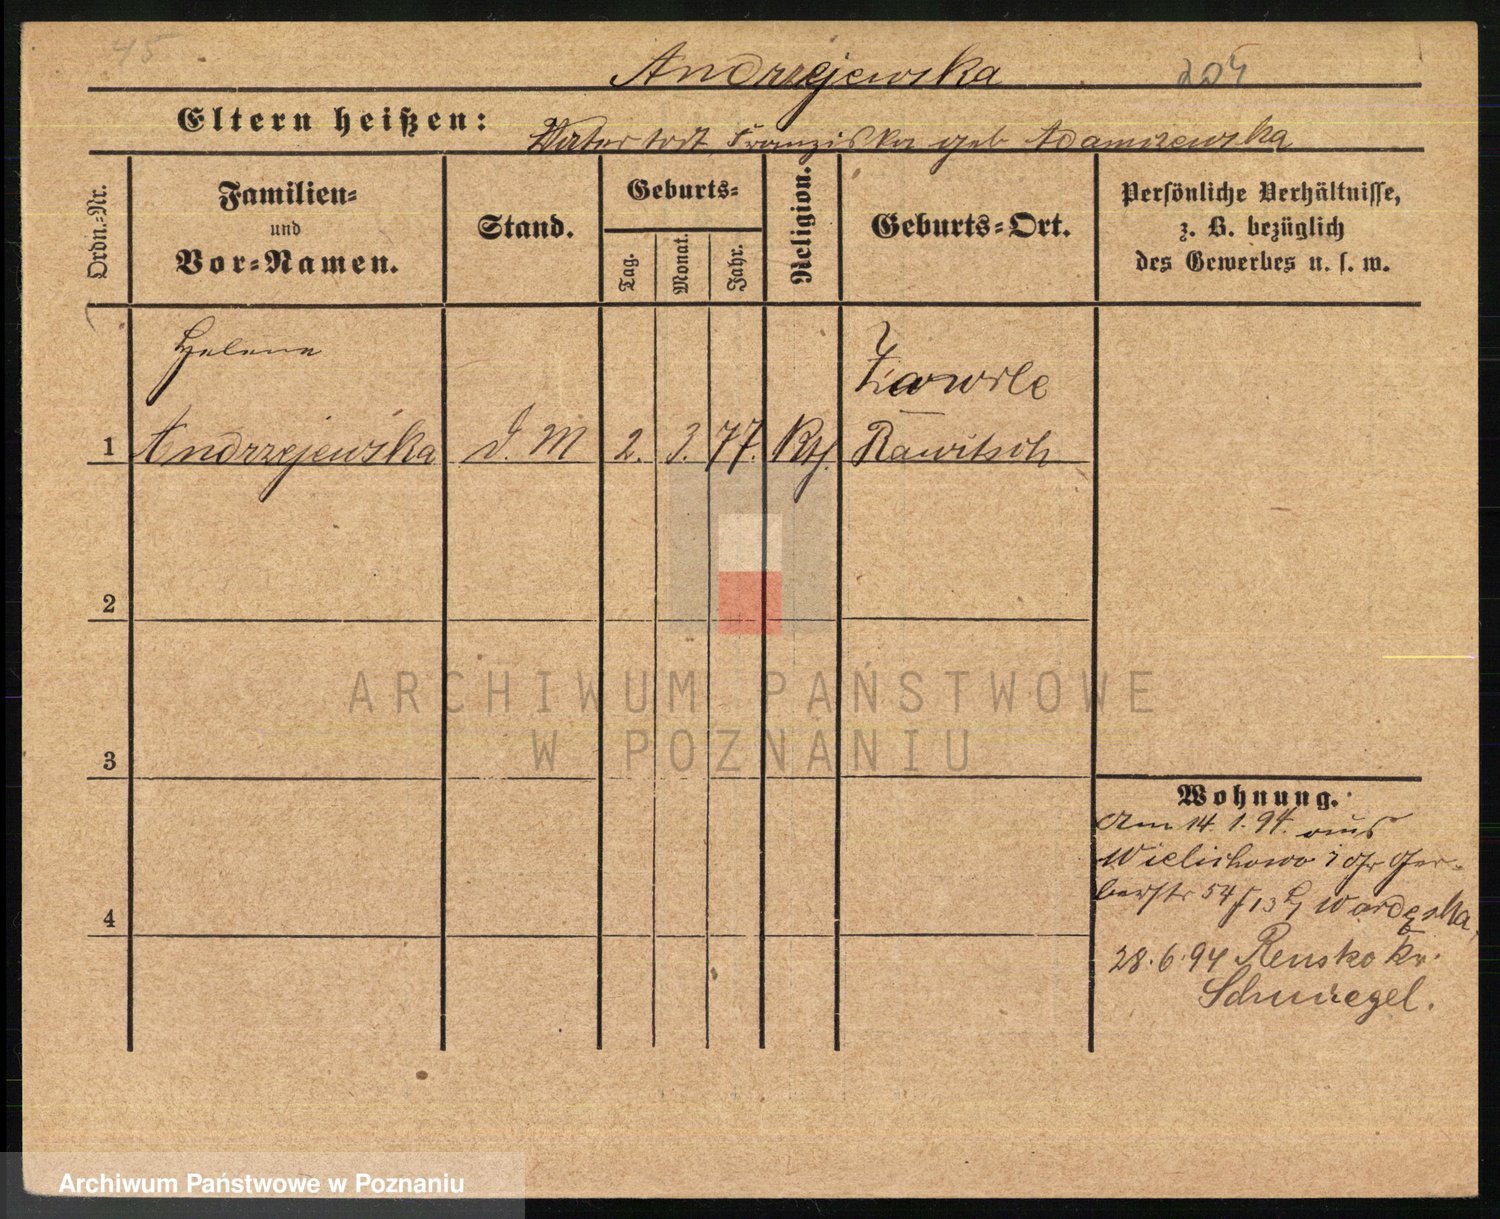 45
Andrzejewska 204
Eltern heißen: Vater todt, Franziska geb Adamczewska
Ordn.=Nr.
Familien=
und
Vor=Namen.
Stand.
Geburts=
Tag.
Monat.
Jahr.
Religion.
Geburts=Ort.
Persönliche Verhältnisse,
z. B. bezüglich
des Gewerbes u. s. w.
Helene
1 Andrzejewska D. M 2. 3. 77. Kth. Rawitsch
2
3
4
ARCHIWUM PAŃSTWOWE
W POZNANIU
Wohnung.
Am 14. 1. 94. aus
Wielichowo Gr Ger-
berstr 54
28. 6. 94 Rensko Kr.
Schmiegel.
Archiwum Państwowe w Poznaniu